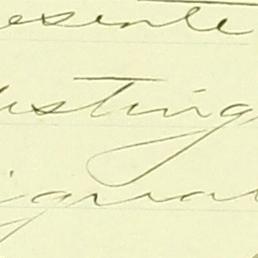 esente
esting
ignat